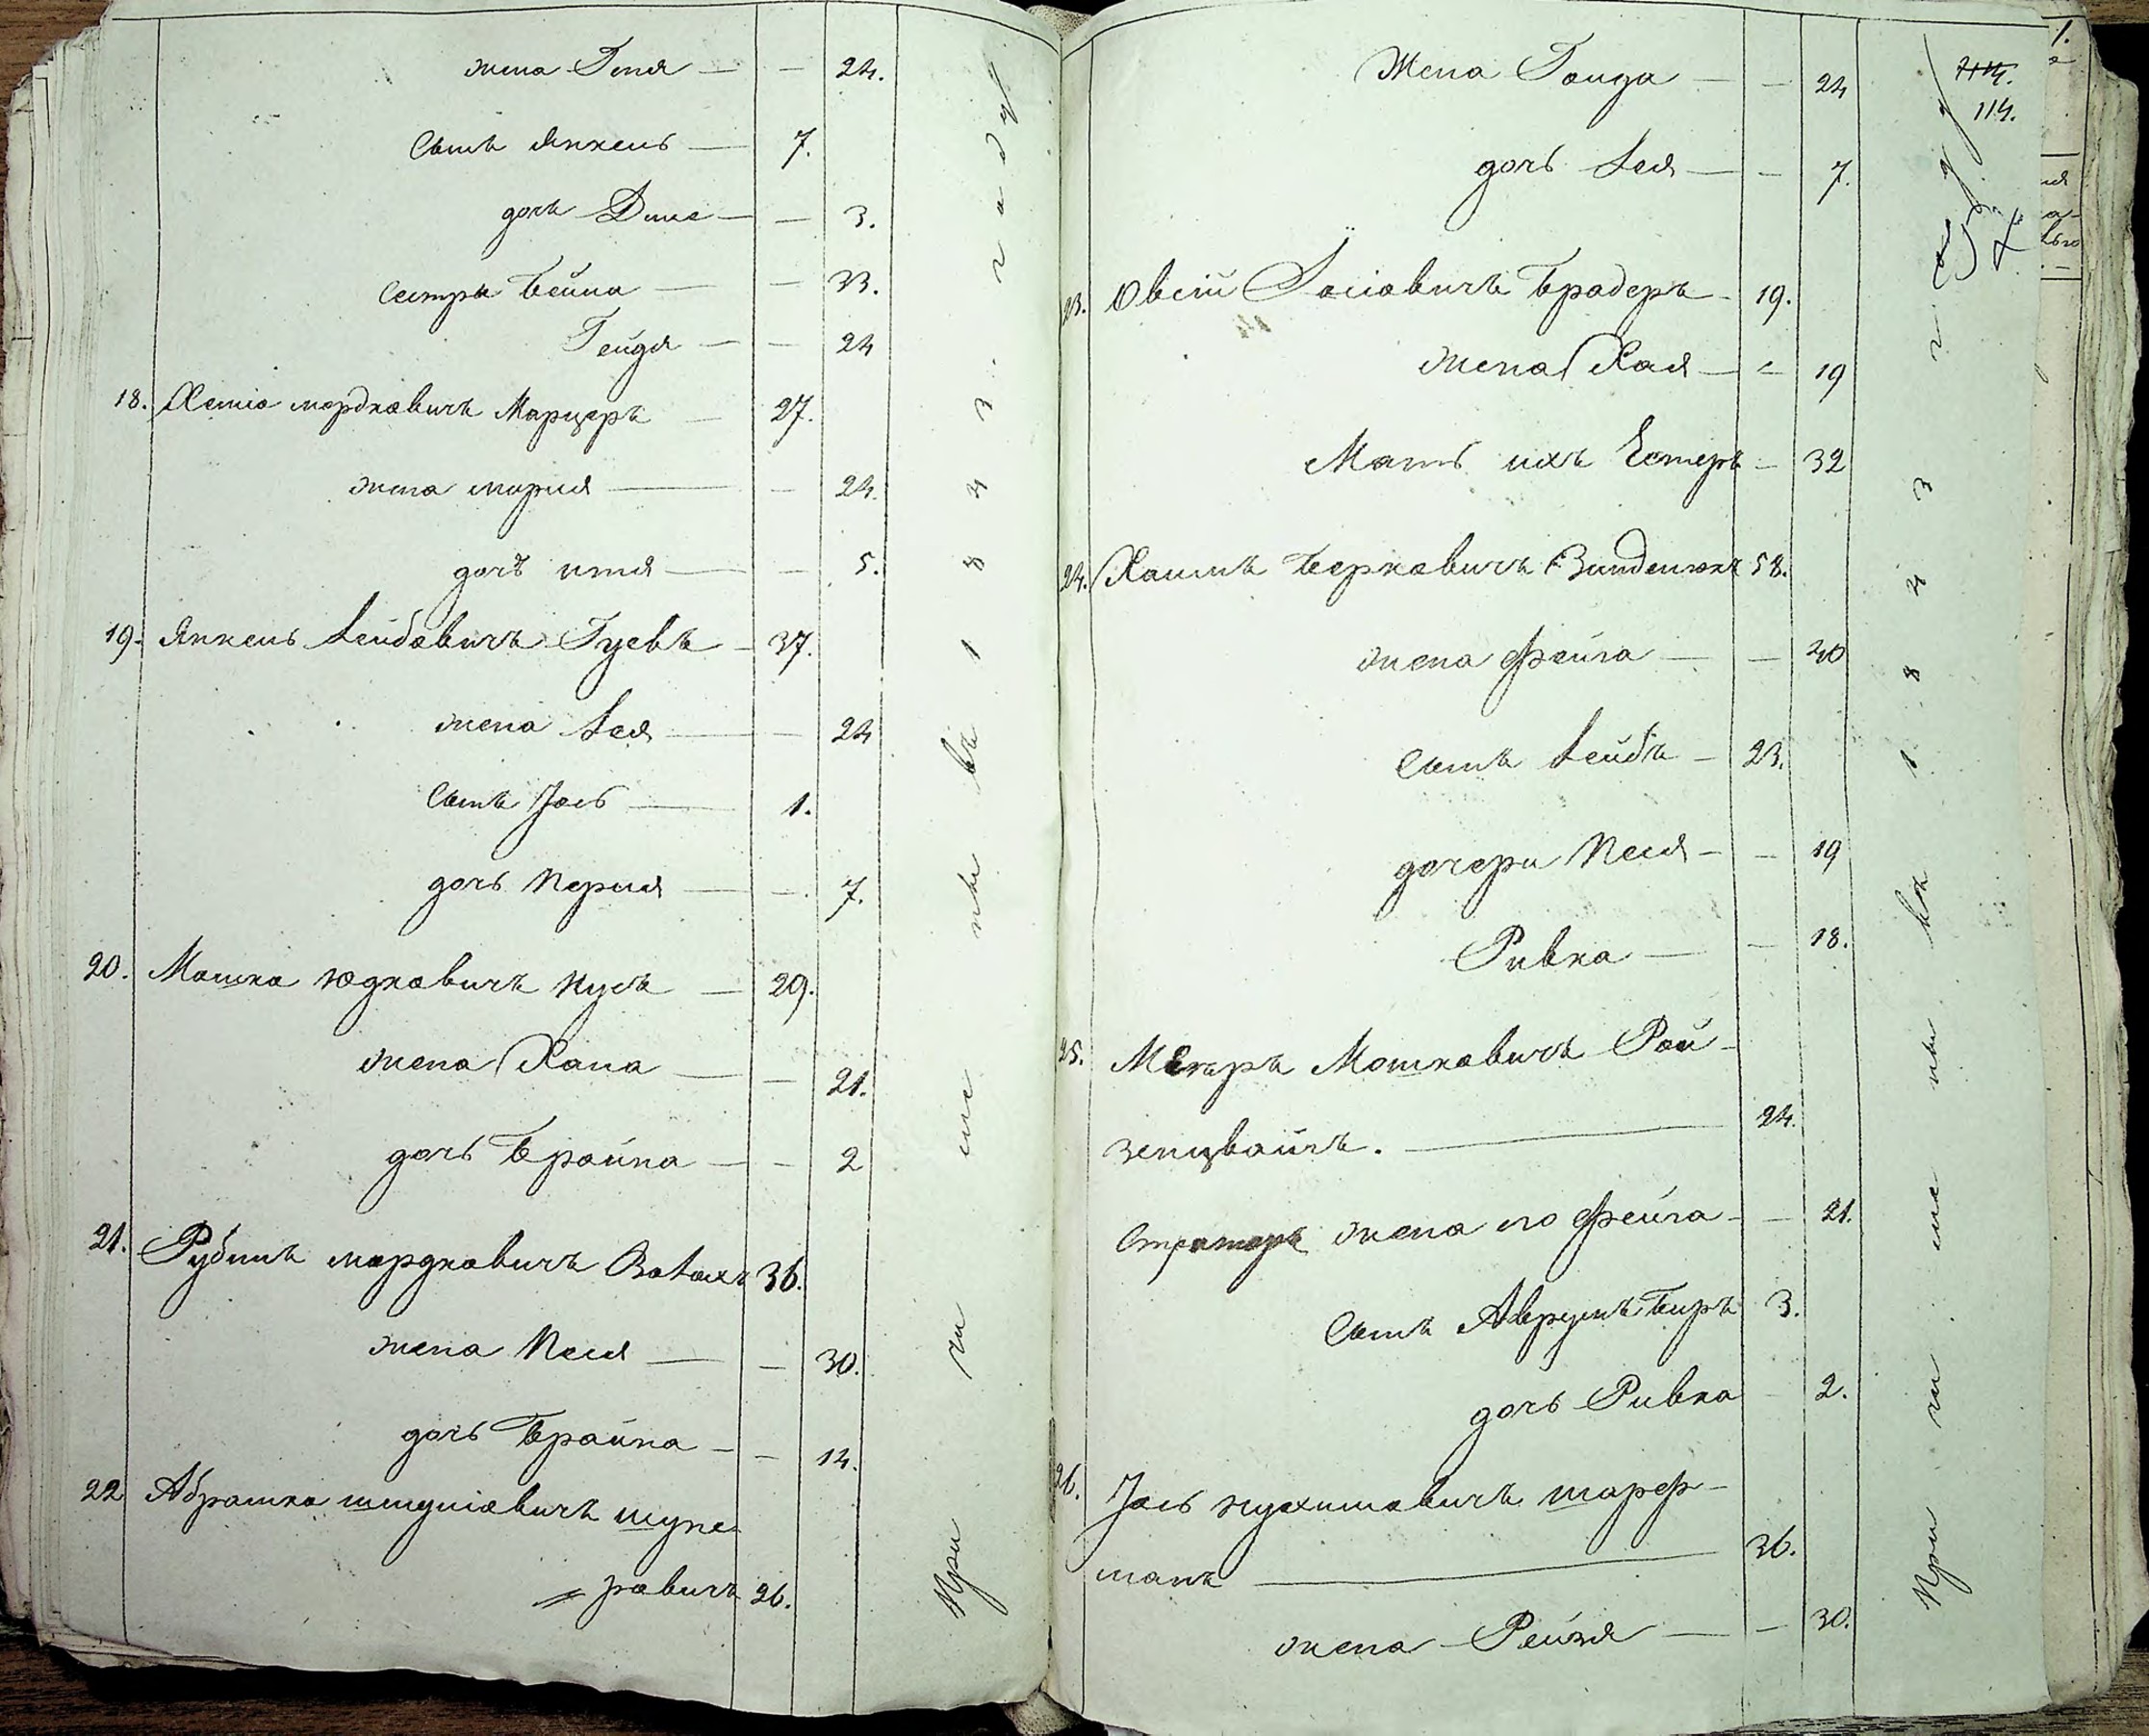 жена Геня — — 24.
сынъ Янкель — 7.
дочь Дине — — 3.
сестра Бейла — — 33.
Гейдя — — 24
18. мордковичъ Марцеръ — 27.
жена мария — — 24.
дочь ития — — 5.
19. Янкель Лейбовичъ Гуевъ — 37.
жена Лея — — 24
сынъ Іось — 1.
дочь Перля — — 7.
20. Мошко юдковичъ Кусъ — 29.
жена Хана — — 21.
дочь Брайна — — 2
21. Рубинъ мордковичъ 36.
жена Песя — — 30.
дочь Брайна — — 14.
22 Абрашко шмулiовичъ шупе-
= ровичъ 26.
При чи сле нъ въ 1 8 4 3. г о д у
114.
114.
Жена Голда — — 24
дочь Лея — — 7.
23. Овсiй Іосiовичъ Бродеръ — 19.
жена Хая — — 19
Мать ихъ Естеръ — 32
24. Хаимъ Берковичъ 58.
жена Фейга — — 40
сынъ Лейбъ — 23.
дочери Песя — — 19
Ривка — — 18.
25. Мееръ Мошковичъ Рой-
зенцвайгъ. — 24.
жена его Фейга — — 21.
сынъ Аврумъ Беръ 3.
дочь Ривка — 2.
26. Іось нухимовичъ шарф-
манъ — 36.
жена — Рейзя — — 30.
При чи сле нъ въ 1 8 4 3 г о д у